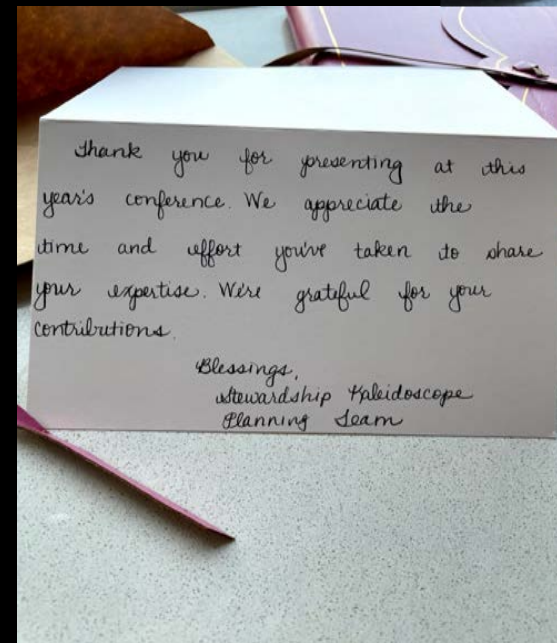 Thank you for presenting at this
year's conference. We appreciate the
time and effort you've taken to share
your expertise. We're grateful for your
contributions.
Blessings,
Stewardship Kaleidoscope
Planning Team